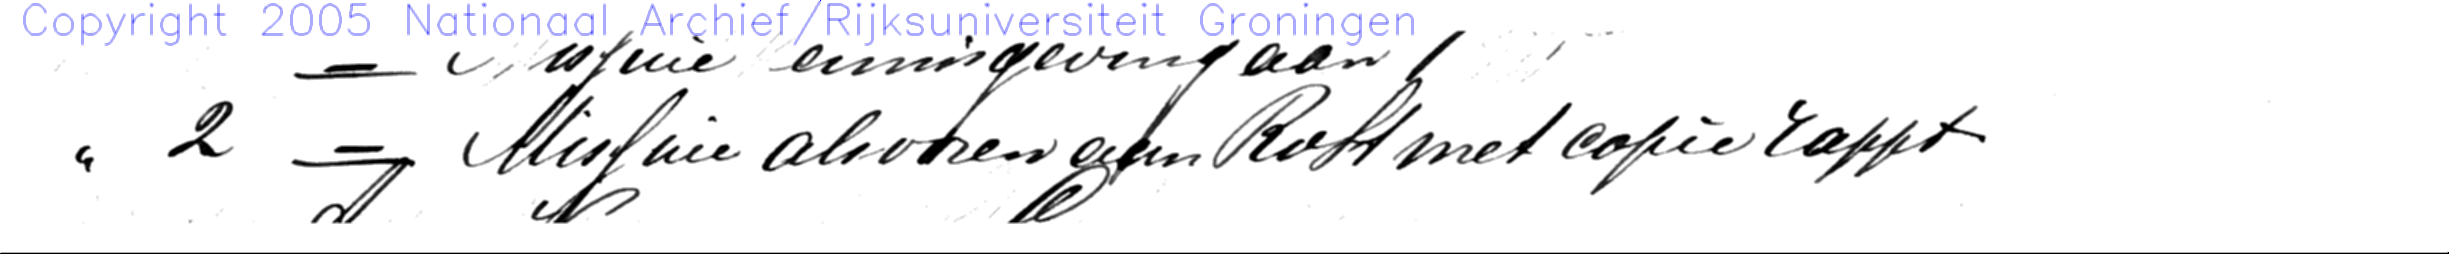 Copyright 2005 Nationaal Archief/Rijksuniversiteit Groningen
Missive kennisgeving aan
" 2 — Missive alsvoren aan Rost met copie rappt